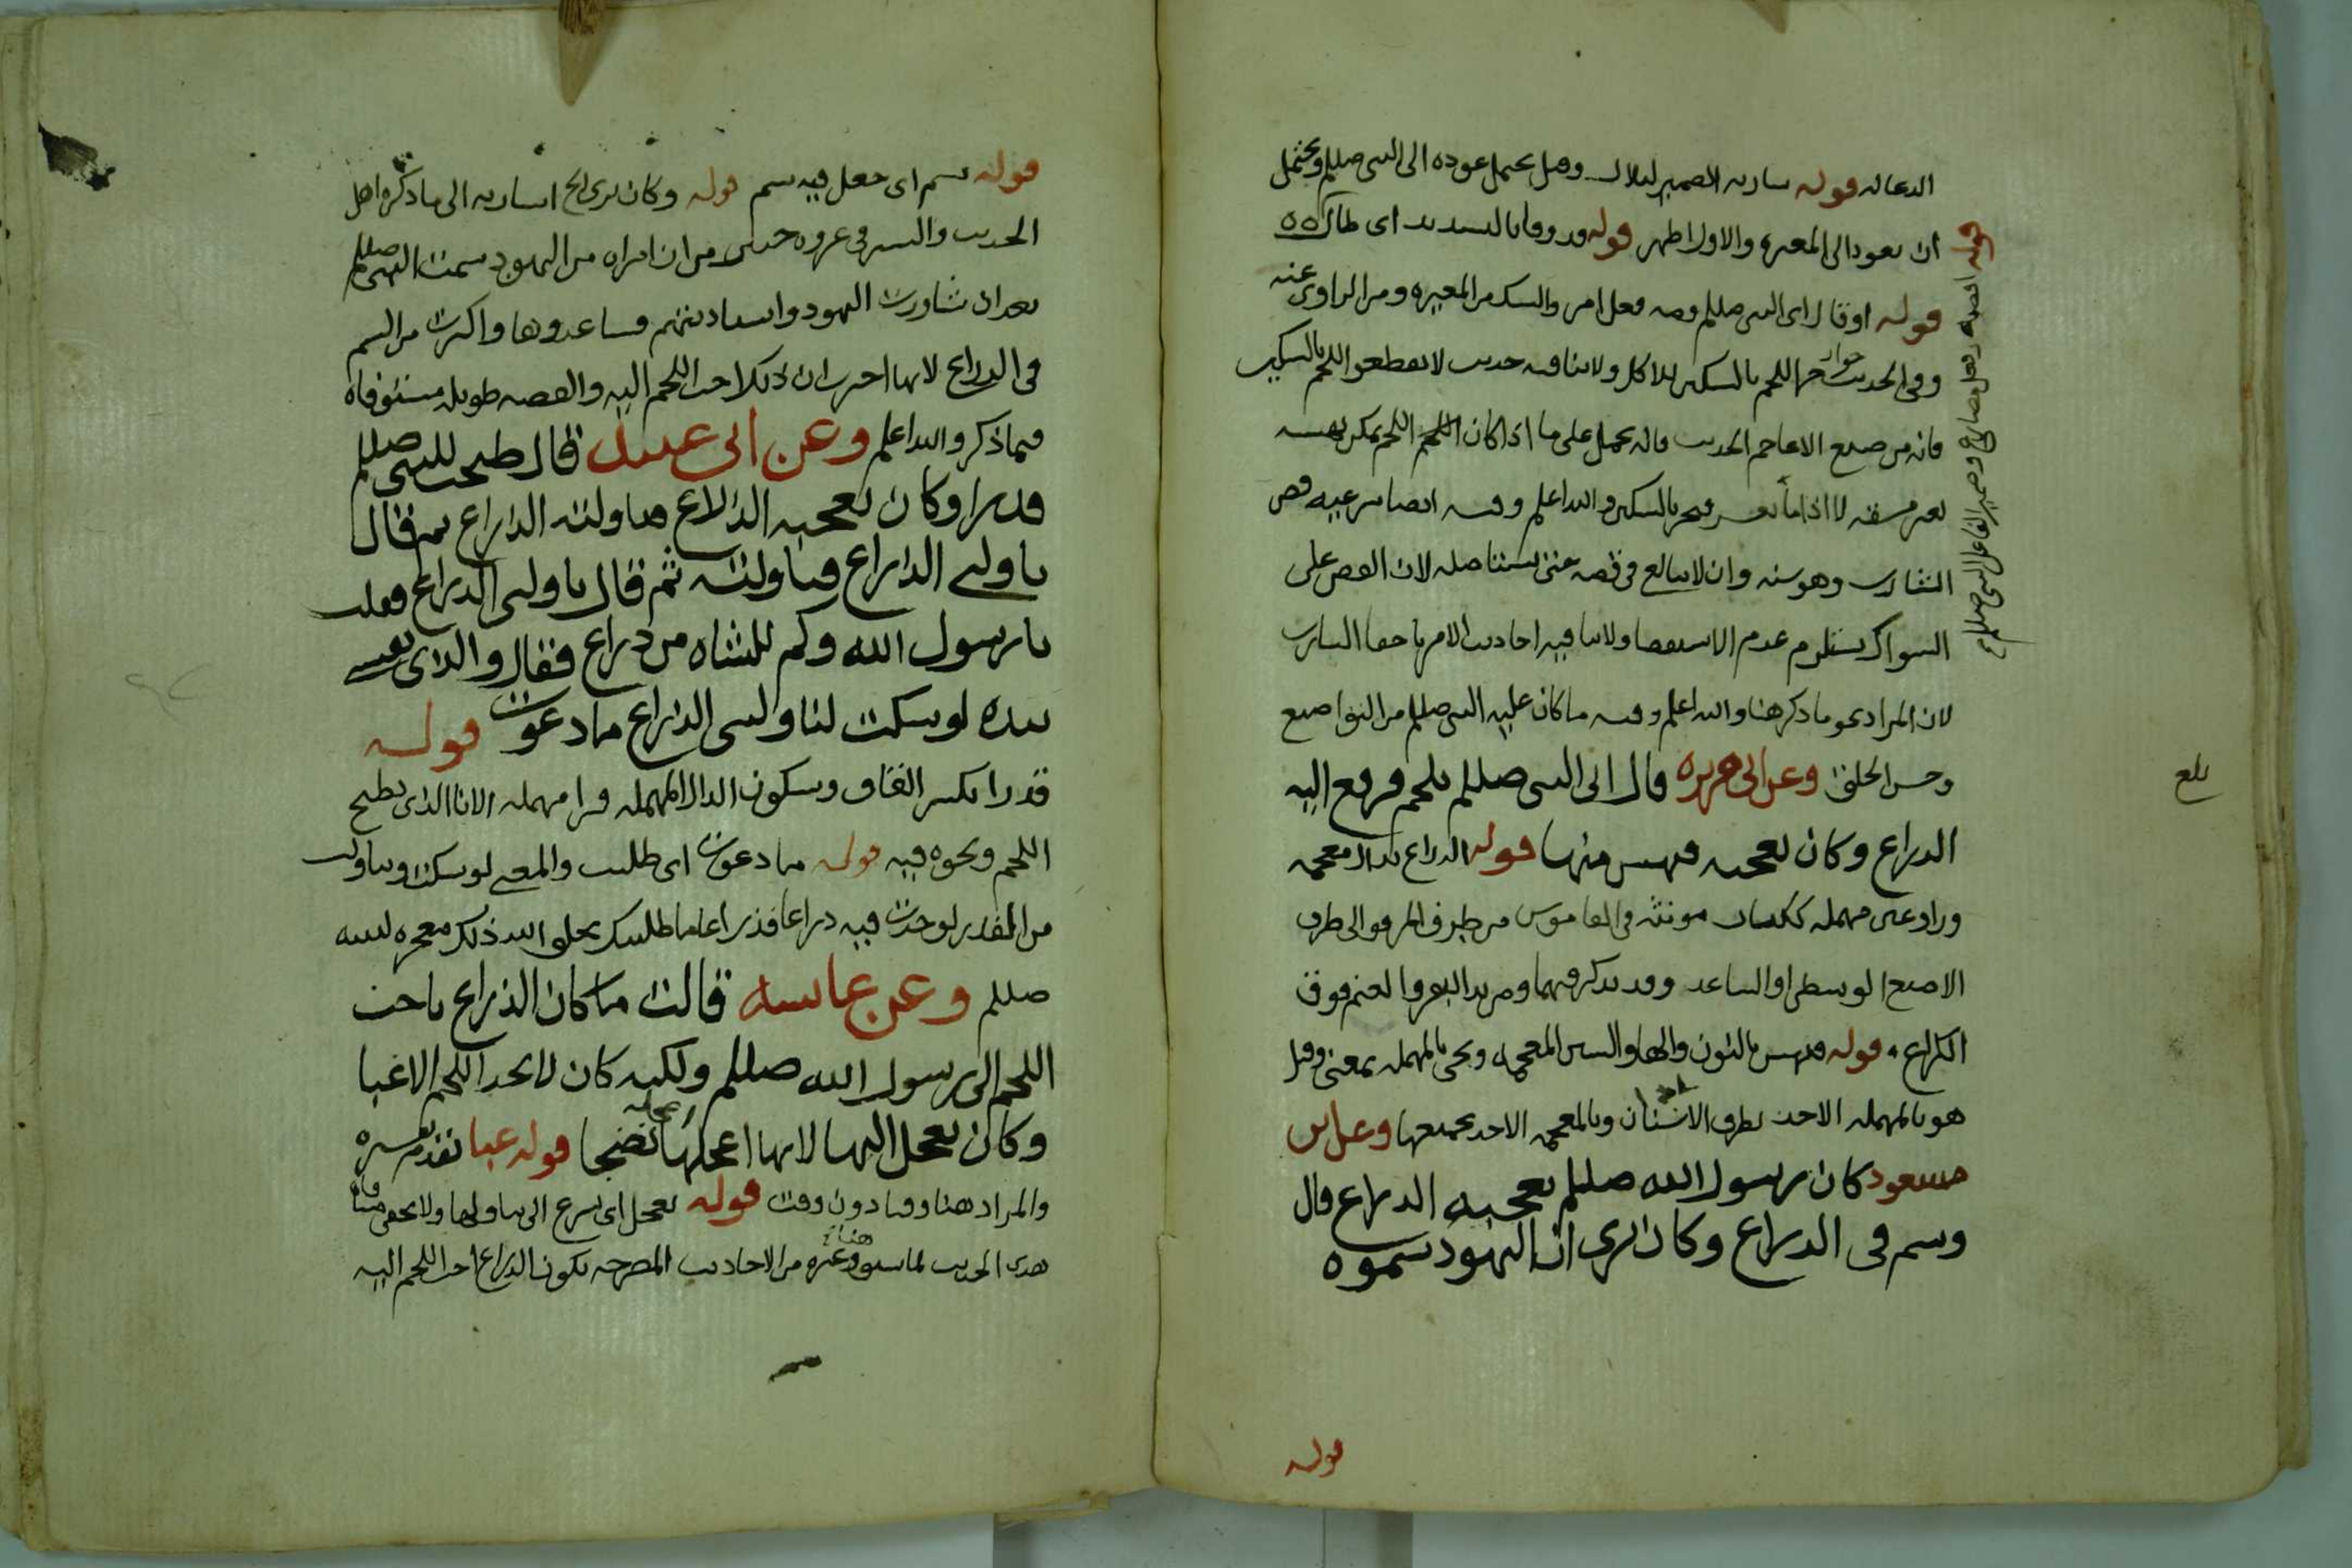 الدعا له قوله شاربه الضمير لبلال وهل يحتمل عوده الى النبي صللم ويحتمل
ان يعود الى المغيره والاول اظهر قوله قد وفا بالتشديد اى طال ٥٥
قوله او قال اى النبي صللم قصه فعل امر والشك من المغيره ومن الراوى عنه
وفى الحديث جواز حز اللحم بالسكين للاكل ولا ينافيه حديث لا تقطعوا اللحم بالسكين
فانه من صنيع الاعاجم الحديث فانه يحمل على ما اذا كان اللحم يمكن نهسه
بغير مشقه لا اذا ما تعسر فيحز بالسكين والله اعلم وفيه ايضا مشرعيه قص
الشارب وهو سنه وان لا يبالغ فى قصه حتى يستاصله لان القص على
السواك يستلزم عدم الاستقصا ولا ينافيه احاديث الامر باحفا الشارب
لان المراد نحو ما ذكر هنا والله اعلم وفيه ما كان عليه النبي صللم من التواضع
وحسن الخلق وعن ابى هريره قال اتى النبي صللم بلحم فرفع اليه
الذراع وكان تعجبه فنهس منها قوله الذراع بذال معجمه
ورا وعين مهمله ككتاب مونثه فى القاموس من طرف المرفق الى طرف
الاصبع الوسطى او الساعد وقد تذكر فيهما ومن يد البقر والغنم فوق
الكراع قوله فنهس بالنون والها والسين المعجمه ويجى بالمهمله بمعنى وقيل
هو بالمهمله الاخذ بطرف الاسنان وبالمعجمه الاخذ بجميعها وعن ابن
مسعود كان رسول الله صللم يعجبه الذراع قال
وسم فى الذراع وكان يرى ان اليهود سموه
قوله
قوله اقصه وضمير الفاعل للنبي صللم
بلغ
قوله سم اى جعل فيه سم قوله وكان يرى الخ اشاربه الى ما ذكره اهل
الحديث والسير فى غزوه خيبر من ان امراه من اليهود سمت النبي صللم
بعد ان شاورت اليهود واستاذنتهم فساعدوها واكثرت من السم
فى الذراع لانها اخبرت ان ذلك احب اللحم اليه والقصه طويله مستوفاه
فيما ذكر والله اعلم وعن ابى عبيد قال طبخت للنبي صللم
قدرا وكان يعجبه الذراع فناولته الذراع ثم قال
ناولنى الذراع فناولته ثم قال ناولنى الذراع فقلت
يا رسول الله وكم للشاه من ذراع فقال والذى نفسى
بيده لو سكت لناولتنى الذراع ما دعوت قوله
قدرا بكسر القاف وسكون الدال المهمله فرا مهمله الانا الذى يطبخ
اللحم ونحوه فيه قوله ما دعوت اى طلبت والمعنى لو سكت وتناولت
من القدر لوجدت فيه ذراعا فذراعا ما طلبتك يخلق الله ذلك معجزه لنبيه
صللم وعن عايشه قالت ما كان الذراع باحب
اللحم الى رسول الله صللم ولكنه كان لا يجد اللحم الا غبا
وكان يعجل اليها لانها اعجلها نضجا قوله غبا تقدم تفسيره
والمراد هنا وقتا دون وقت قوله يعجل اى يسرع الى تناولها ولا يخفى منافاة
هذى الحديث لما سبق هنا وغيره من الاحاديث المصرحه بكون الذراع احب اللحم اليه